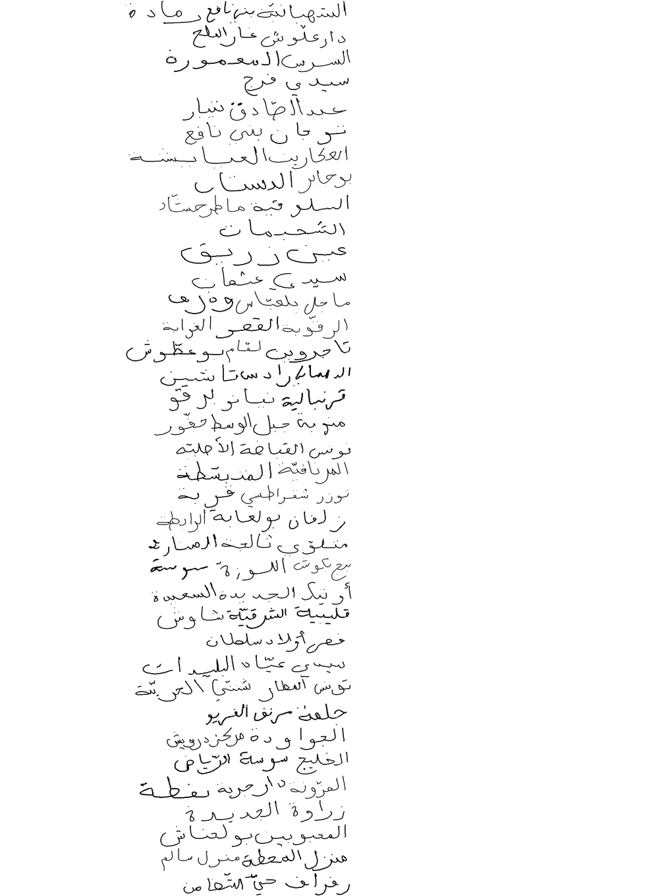 الشهبانية بني نافع رمادة
دار علّوش غار الملح
السرس المعمورة
سيدي فرج
عبد الصّادق شيار
نوجان بني نافع
العكاريت العيايشة
بوحاتم الدستاب
السلوقية ماطر حشّاد
الشحيمات
عين زريق
سيدي عثمان
ماجل بلعبّاس وذرف
الرقّوبة القصر الغرابة
تاجروين لقّام بو عطّوش
رادس تاشين
قرنبالية نيانو لرقّو
منوبة جبل الوسط حفّور
تونس القباضة الأصلية
المرناقيّة الفديشطة
توزر شقراطسي قرية
زلفان بولعابة الرابطة
متلوّي ثالجة
اللوزة سوسة
أوتيك الجديدة السعيدة
قليبية الشرقيّة شاوش
قصر أولاد سلطان
سيدي عيّاد البليدات
تونس المطار شنتي الحريّة
جلمة مرنق الفريو
الجواودة مركز درويش
الخليج سوسة الرّياض
المزّونة دار جربة نفطة
زراوة الجديدة
المعبوبين بولعناش
منزل المحطة منزل سالم
رفراف حيّ التّضامن